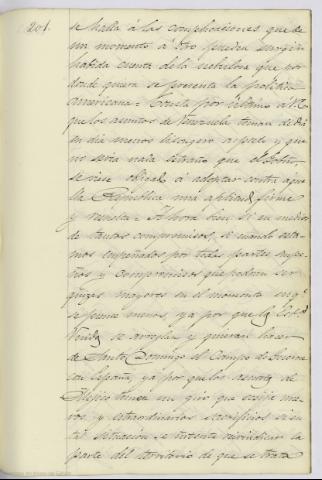 201.
se halla á las complicaciones que de
un momento á otro pueden surgir
habida cuenta de la nebulosa que por
donde quiera se presenta la política
americana. Consta por último á V.E.
que los asuntos de Venezuela toman de dia
en dia menos lisongero aspecto y que
no seria nada estraño que el Gobno.
se viese obligado á adoptar contra aque
lla República una actitud firme
y resuelta. Ahora bien si en medio
de tantos compromisos, si cuando esta-
mos empeñados por todas partes
y compromisos que podran ser
quizas mayores en el momento en q.
se piense menos, ya por que los Estds.
Unidos se arreglen y quieran hacer
de Santo Domingo el Campo de
con España, ya por que los asuntos de
Mejico tomen un giro que exija nue-
vos y estraordinarios sacrificios si en
tal situacion se intenta reivindicar la
parte del territorio de que se trata